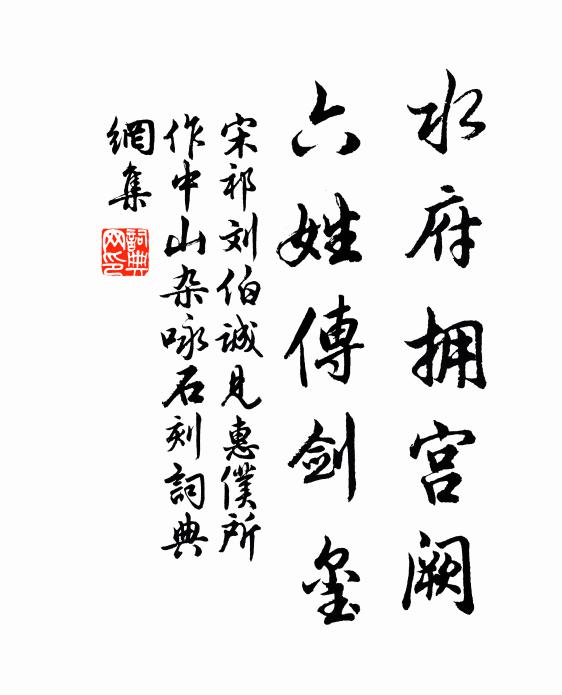 水府拥宫阙
六姓傳剑玺
宋祁刘伯诚見惠僕所
作中山杂咏石刻詞典
網集
詞典
网印